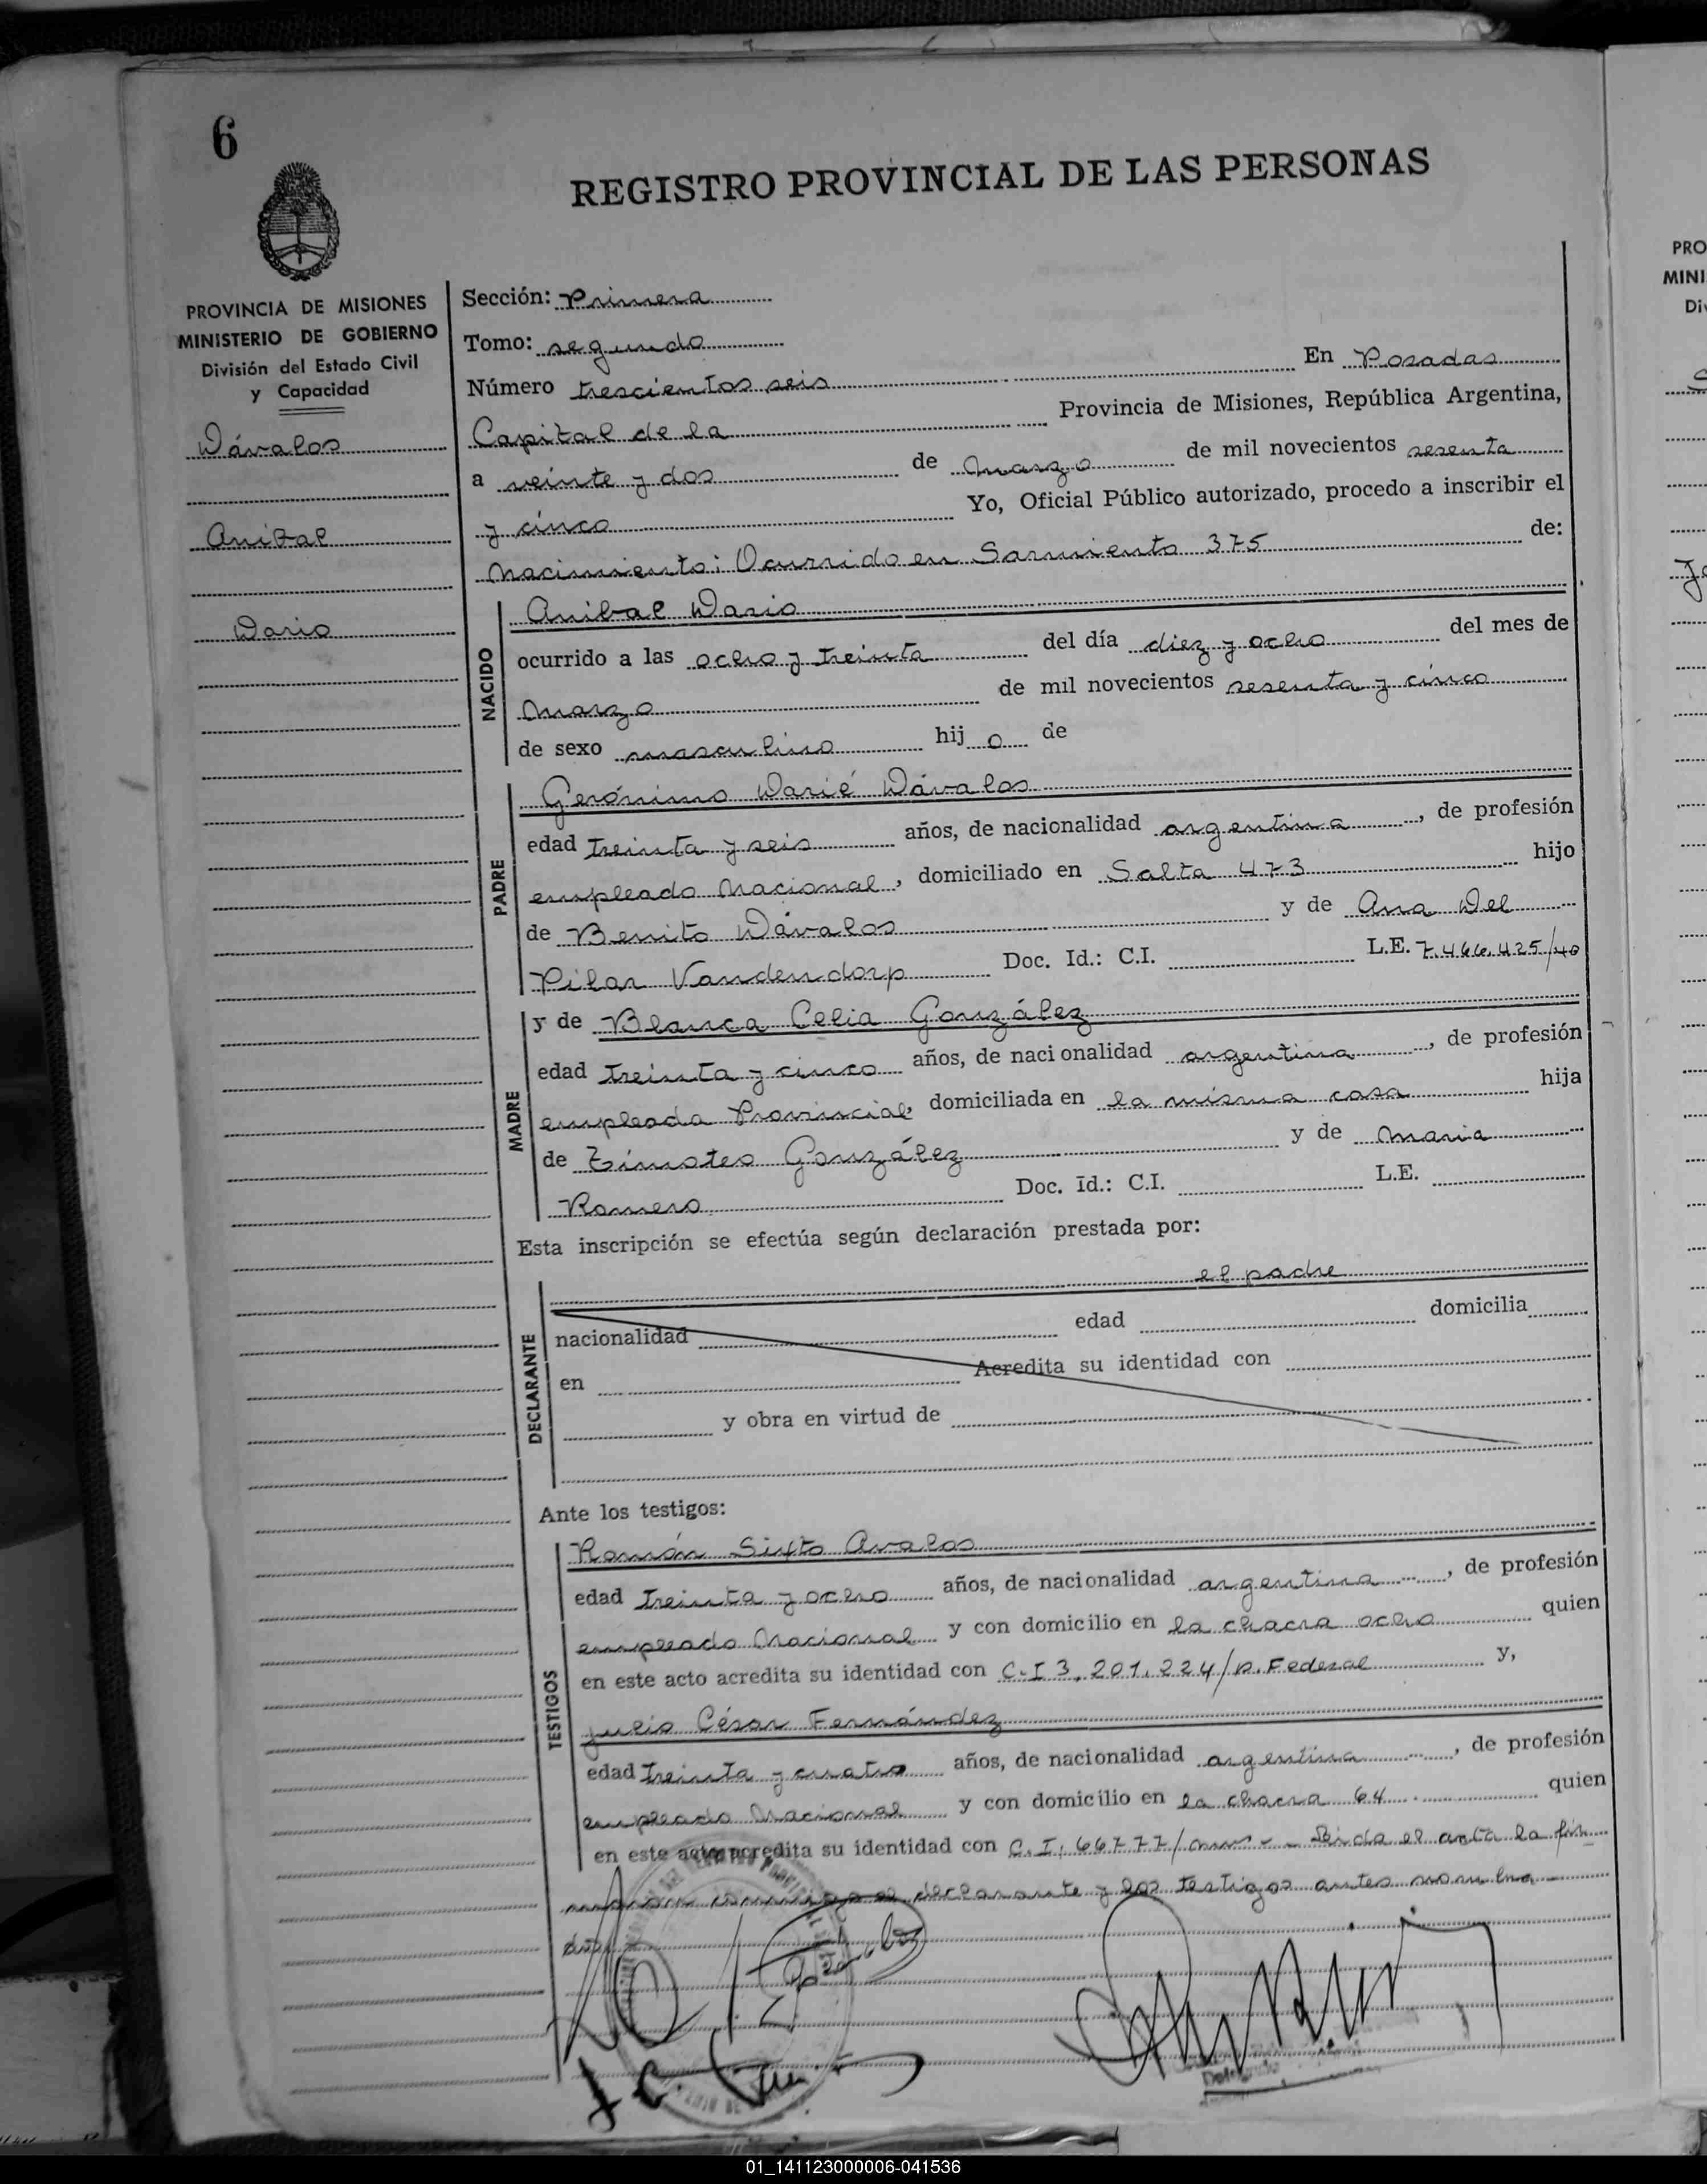 6
REGISTRO PROVINCIAL DE LAS PERSONAS
PROVINCIA DE MISIONES
MINISTERIO DE GOBIERNO
División del Estado Civil
y Capacidad
Dávalos
Anibal
Dario
Sección: Primera
Tomo: segundo
Número trescientos seis En Posadas
Capital de la Provincia de Misiones, República Argentina,
a veinte y dos de marzo de mil novecientos sesenta
y cinco Yo, Oficial Público autorizado, procedo a inscribir el
Nacimiento: Ocurrido en Sarmiento 375 de:
NACIDO
Anibal Dario
ocurrido a las ocho y treinta del día diez y ocho del mes de
marzo de mil novecientos sesenta y cinco
de sexo masculino hijo de
PADRE
Gerónimo Darié Dávalos
edad treinta y seis años, de nacionalidad argentina, de profesión
empleado Nacional, domiciliado en Salta 473 hijo
de Benito Dávalos y de Ana Del
Pilar Vandendorp Doc. Id.: C.I. L.E. 7.466.425/40
MADRE
y de Blanca Celia González
edad treinta y cinco años, de nacionalidad argentina, de profesión
empleada Provincial, domiciliada en la misma casa hija
de Timoteo González y de Maria
Romero Doc. Id.: C.I. L.E.
Esta inscripción se efectúa según declaración prestada por:
DECLARANTE
el padre
nacionalidad edad domicilia
en Acredita su identidad con
y obra en virtud de
Ante los testigos:
TESTIGOS
Ramón Sixto Avalos
edad treinta y ocho años, de nacionalidad argentina, de profesión
empleado Nacional y con domicilio en la chacra ocho quien
en este acto acredita su identidad con C.I 3.201.224/P. Federal y,
Julio César Fernández
edad treinta y cuatro años, de nacionalidad argentina, de profesión
empleado Nacional y con domicilio en la chacra 64 quien
en este acto acredita su identidad con C.I. 66777/mns - Leida el acta la fir
maron conmigo el declarante y los testigos antes nombra
dos
PRO
MINI
Div
01_141123000006-041536